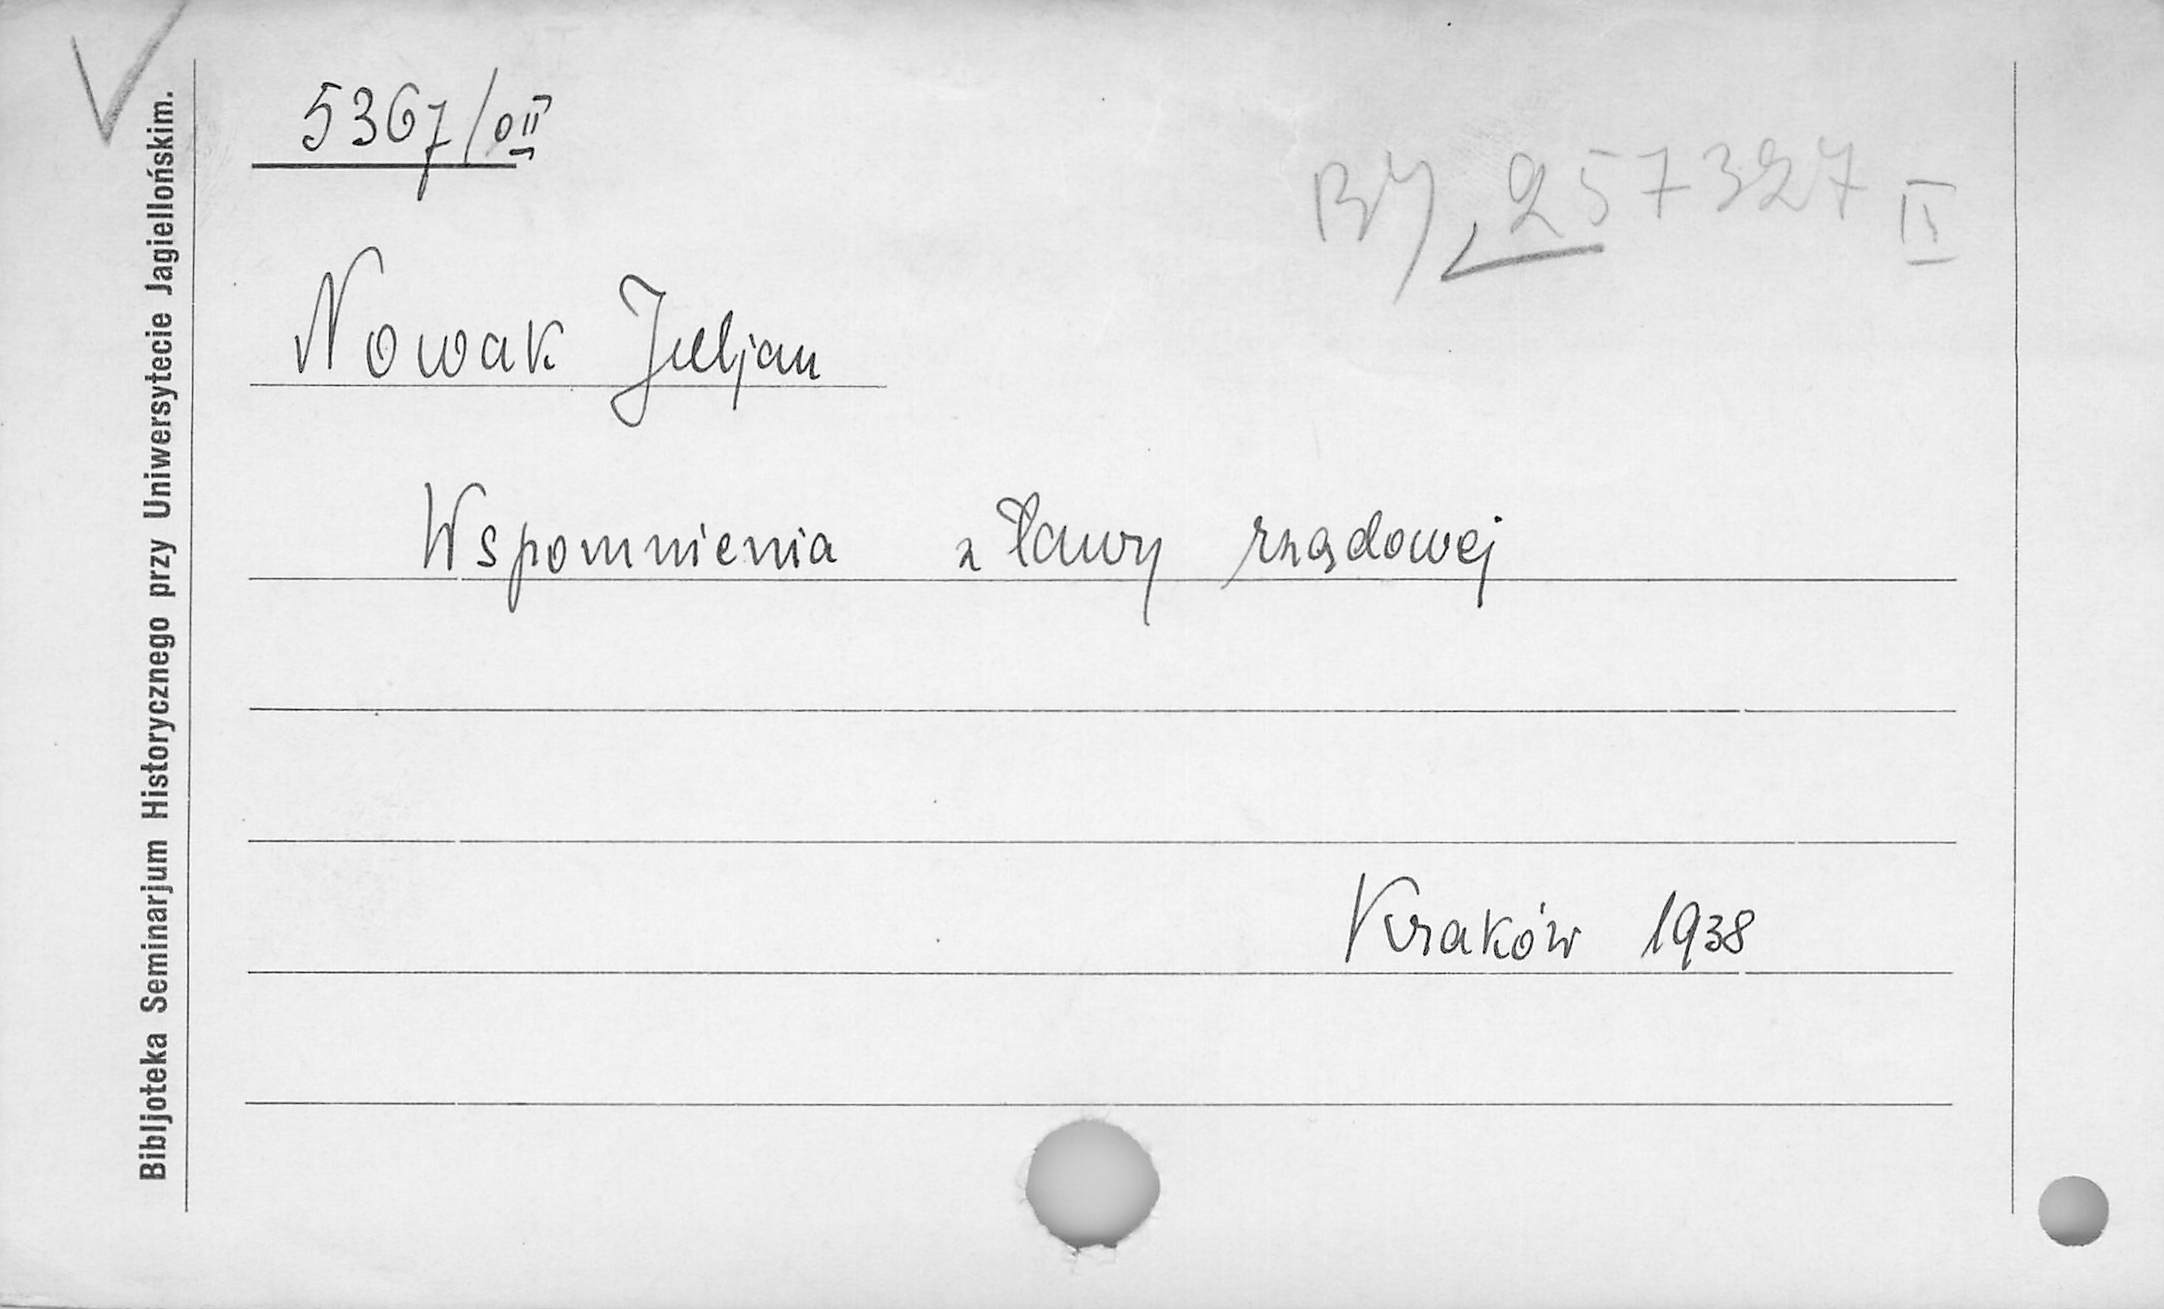 5367/0II
BJ, 257327 II
Nowak Juljan
Wspomnienia z ławy rządowej
Kraków 1938
Bibljoteka Seminarjum Historycznego przy Uniwersytecie Jagiellońskim.